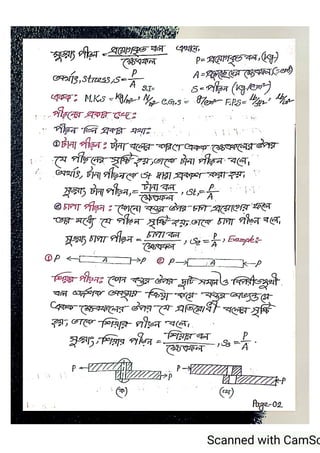 সুতরাং পীড়ন = প্রয়োগকৃত বল / ক্ষেত্রফল এখানে,
P = প্রয়োগকৃত বল, (kg)
অর্থাৎ, stress, S = P/A
A = ক্ষেত্রফল (cm²)
S = পীড়ন (kg/cm²)
একক: M.K.S = kg/m², S.I = N/m² C.G.S = F.P.S =
পীড়ন তিন প্রকার যথা:
① টানা পীড়ন: টানা বলের কারণে একক ক্ষেত্রফলের উপর
যে পীড়নের সৃষ্টি হয়, তাকে টানা পীড়ন বলে,
অর্থাৎ, টানা পীড়নকে St দ্বারা প্রকাশ করা হয়,
সুতরাং টানা পীড়ন, = টানা বল / ক্ষেত্রফল , St = P/A
② চাপা পীড়ন: কোনো বস্তুর উপর চাপা প্রয়োগের ফলে
তার মধ্যে যে পীড়ন সৃষ্টি হয়, তাকে চাপা পীড়ন বলে,
সুতরাং চাপা পীড়ন = চাপা বল / ক্ষেত্রফল , Sc = P/A , Example:-
① P A P ② P A P
শিয়ার পীড়ন: কোন বস্তুর উপর দুটি সমান ও বিপরীতমুখী
বল ক্রিয়া করে বস্তুর
একক ক্ষেত্রফলের উপর যে প্রতিরোধী বলের সৃষ্টি
হয়, তাকে শিয়ার পীড়ন বলে,
সুতরাং, শিয়ার পীড়ন = শিয়ার বল / ক্ষেত্রফল , Ss = P/A .
P P P P
(ক) (খ)
Page-02
Scanned with CamSc